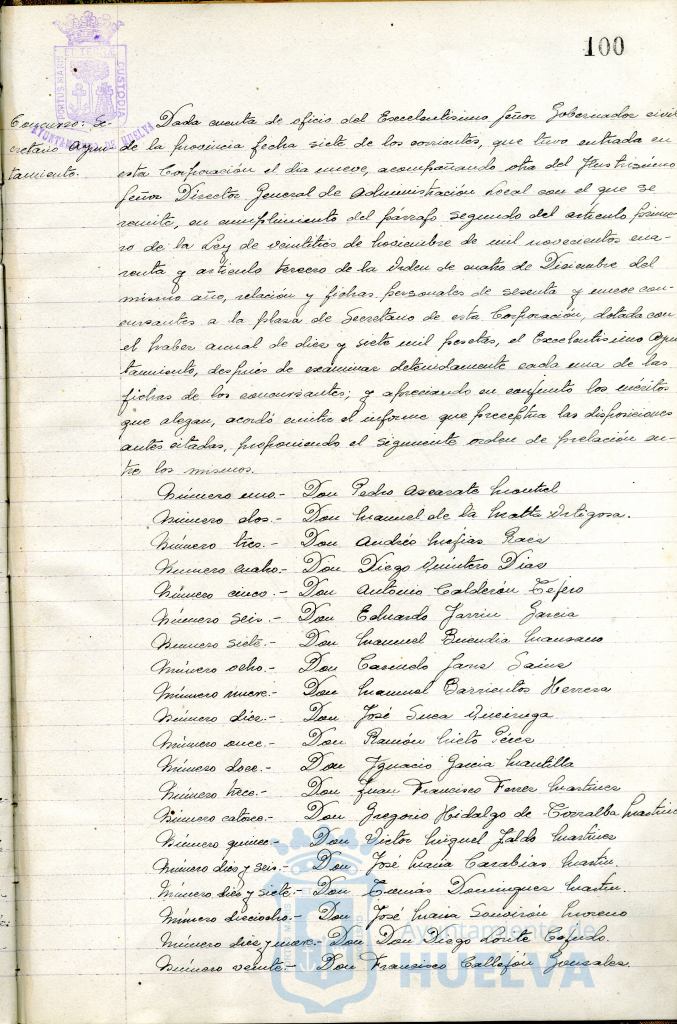 100
PORTUS MARIS ET TERRAE CUSTODIA
AYUNTAMIENTO DE HUELVA
Concurso: Se-
cretario Ayun-
tamiento.
Dada cuenta de oficio del Excelentisimo Señor Gobernador civil
de la provincia fecha siete de los corrientes, que tuvo entrada en
esta Corporación el dia nueve, acompañando otra del Ilustrisimo
Señor Director General de Administración Local con el que se
remite, en cumplimiento del párrafo segundo del articulo prime-
ro de la Ley de veintitrés de Noviembre de mil novecientos cua-
renta y articulo tercero de la Orden de cuatro de Diciembre del
mismo año, relación y fichas personales de sesenta y nueve con-
cursantes a la plaza de Secretario de esta Corporación, dotada con
el haber anual de diez y siete mil pesetas, el Excelentisimo Ayun-
tamiento, después de examinar detenidamente cada una de las
fichas de los concursantes; y apreciando en conjunto los méritos
que alegan, acordó emitir el informe que preceptua las disposiciones
antes citadas, proponiendo el siguiente orden de prelación en-
tre los mismos.
Número uno.- Don Pedro Ascarate Montiel
Número dos.- Don Manuel de la Matta Ortigosa.
Número tres.- Don Andrés Mejias Raes
Número cuatro.- Don Diego Quintero Dias
Número cinco.- Don Antonio Calderón Tejero
Número seis.- Don Eduardo Jarrin Garcia
Número siete.- Don Manuel Buendia Mansano
Número ocho.- Don Casendo Jans Sains
Número nueve.- Don Manuel Barrientos Herrera
Número diez.- Don José Suca Queiruga
Número once.- Don Ramón Nieto Péres
Número doce.- Don Ignacio Garcia Mantilla
Número trece.- Don Juan Francisco Ferrer Martines
Número catorce.- Don Gregorio Hidalgo de Torralba Martines
Número quince.- Don Victor Miguel Jaldo Martines
Número dies y seis.- Don José Maria Carabias Martin.
Número dies y siete.- Don Tomás Dominguez Martin.
Número dieciocho.- Don José Maria Souvirón Moreno
Número dies y nueve.- Don Don Diego Lorite Cejudo.
Número veinte.- Don Francisco Callejón Gonsales.
Ayuntamiento de
HUELVA